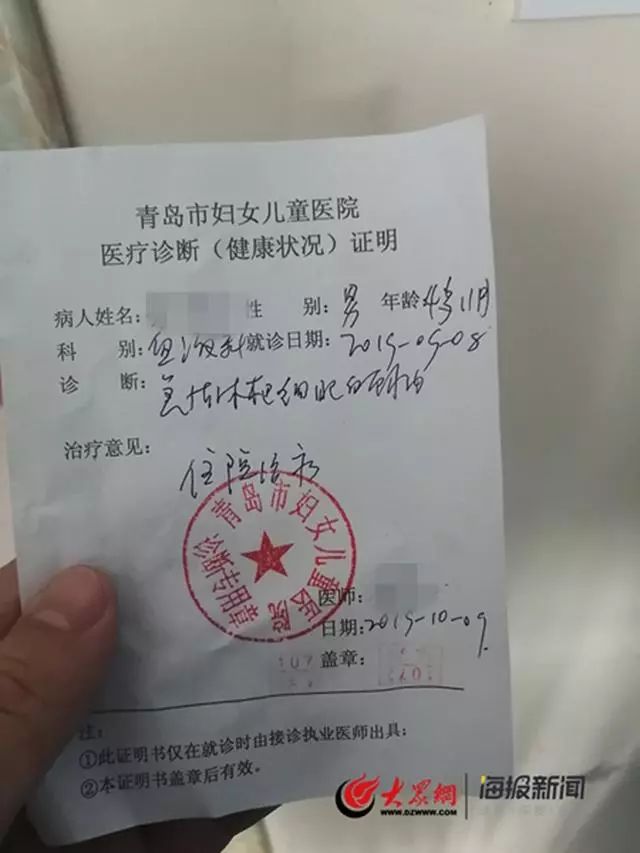 青岛市妇女儿童医院
医疗诊断（健康状况）证明
病人姓名: 性 别: 男 年龄 4岁11月
科 别: 血液科 就诊日期: 2019-09-08
诊 断:
治疗意见:
住院治疗
青岛市妇女儿童医院
诊断专用章
医师:
日期: 2019-10-09
盖章:
注:
①此证明书仅在就诊时由接诊执业医师出具;
②本证明书盖章后有效。
大众網
WWW.DZWWW.COM
海报新闻